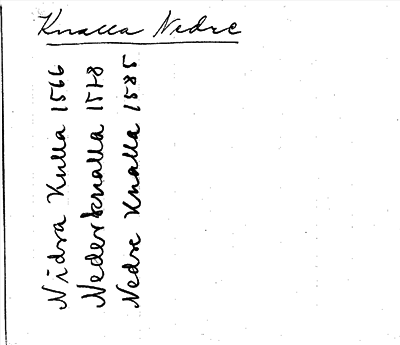 Knalla Nedre
Nidra Kulla 1566
Nederknalla 1578
Nedre Knalla 1585